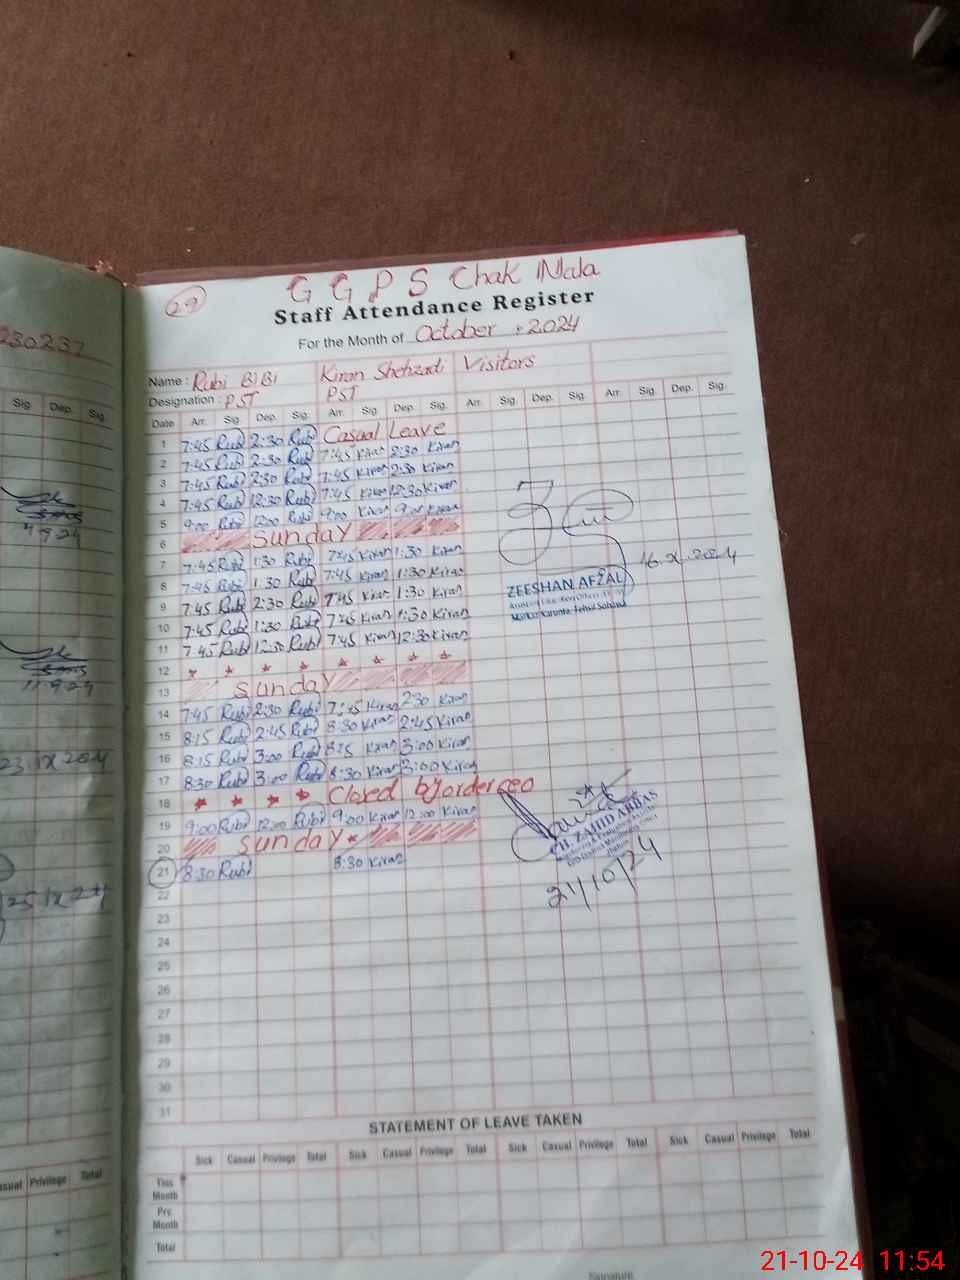 29
G G P S Chak Nala
Staff Attendance Register
For the Month of October 2024
Name : Rubi BiBi Kiran Shehzadi Visitors
Designation : PST PST
Date Arr. Sig. Dep. Sig. Arr. Sig. Dep. Sig. Arr. Sig. Dep. Sig. Arr. Sig. Dep. Sig.
1 7:45 Rubi 2:30 Rubi Casual Leave
2 7:45 Rubi 2:30 Rubi 7:45 Kiran 2:30 Kiran
3 7:45 Rubi 2:30 Rubi 7:45 Kiran 2:30 Kiran
4 7:45 Rubi 12:30 Rubi 7:45 Kiran 12:30 Kiran
5 9:00 Rubi 12:00 Rubi 9:00 Kiran Kiran
6 Sunday
7 7:45 Rubi 1:30 Rubi 7:45 Kiran 1:30 Kiran
8 7:45 Rubi 1:30 Rubi 7:45 Kiran 1:30 Kiran
9 7:45 Rubi 2:30 Rubi 7:45 Kiran 1:30 Kiran
10 7:45 Rubi 1:30 Rubi 7:45 Kiran 1:30 Kiran
11 7:45 Rubi 12:30 Rubi 7:45 Kiran 12:30 Kiran
12
13 Sunday
14 7:45 Rubi 2:30 Rubi 7:45 Kiran 2:30 Kiran
15 8:15 Rubi 2:45 Rubi 8:30 Kiran 2:45 Kiran
16 8:15 Rubi 3:00 Rubi 8:15 Kiran 3:00 Kiran
17 8:30 Rubi 3:00 Rubi 8:30 Kiran 3:00 Kiran
18 Closed by order ceo
19 9:00 Rubi 12:00 Rubi 9:00 Kiran 12:00 Kiran
20 Sunday
21 8:30 Rubi 8:30 Kiran
22
23
24
25
26
27
28
29
30
31
16.X.2024
ZEESHAN AFZAL
CH. ZAHID ABBAS
21/10/24
STATEMENT OF LEAVE TAKEN
Sick Casual Privilege Total Sick Casual Privilege Total Sick Casual Privilege Total Sick Casual Privilege Total
This Month
Prv. Month
Total
Signature
230237
Sig. Dep. Sig.
4 9 24
11 9 24
23 IX 2024
25 IX 24
Casual Privilege Total
21-10-24 11:54